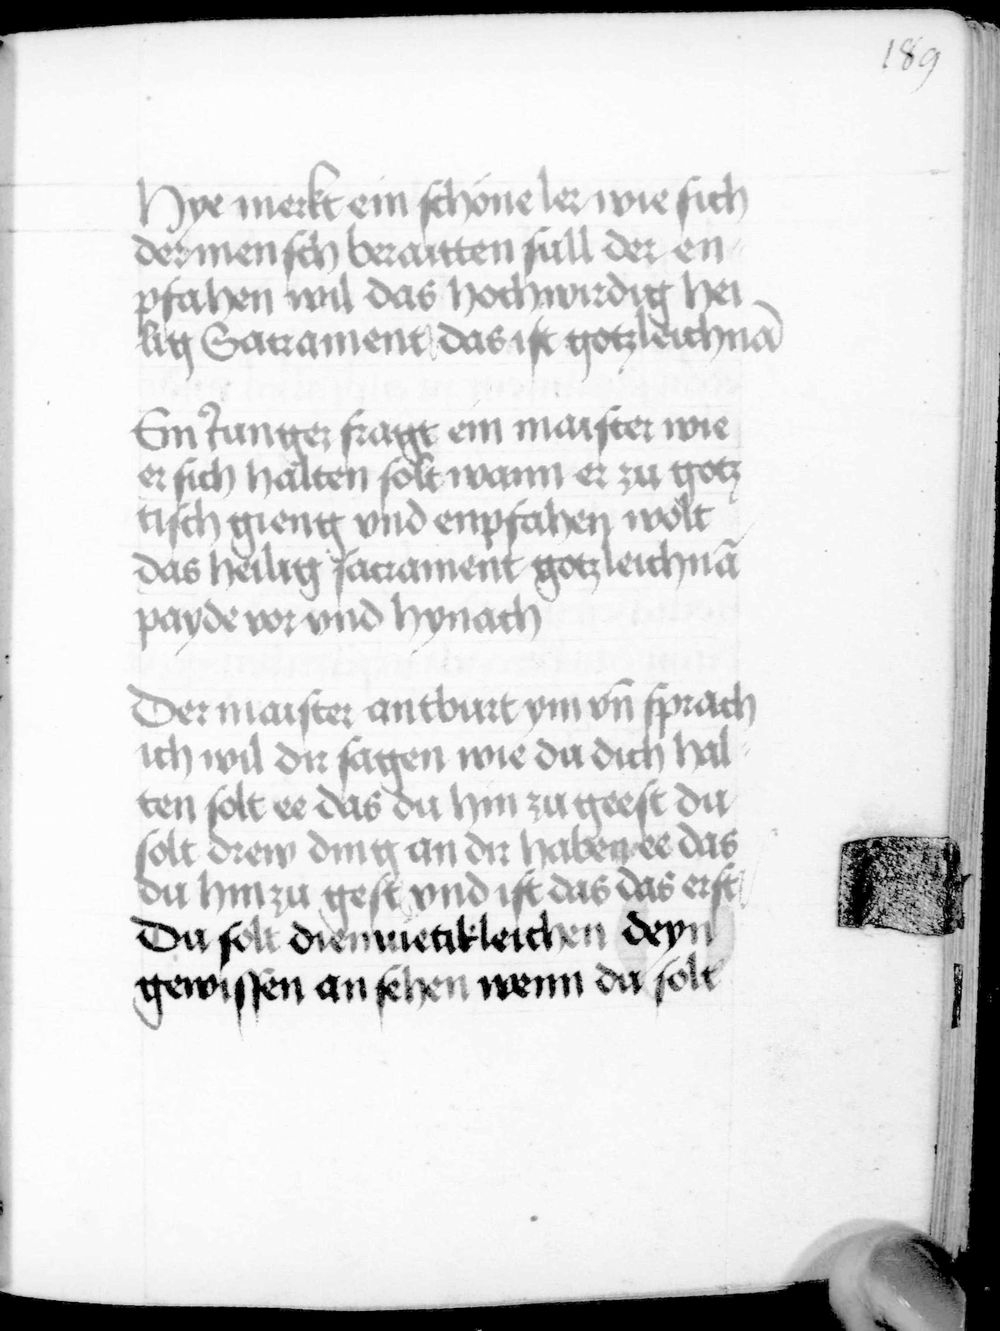 189
Hye merkt ein schöne ler wie sich
der mensch beraitten sull der en
pfahen wil das hochwirdig hei
lig Sacrament das ist gotzleichnā
Ein Junger fragt ein maister wie
er sich halten solt wann er zu gotz
tisch gieng vnd enpfahen wölt
das heilig sacrament gotzleichnā
payde vor vnd hynach
Der maister antburt ym vn̄ sprach
ich wil dir sagen wie du dich hal
ten solt ee das du hin zu geest du
solt drew ding an dir haben ee das
du hinzu gest vnd ist das das erst
Du solt diemuetikleichen deyn
gewissen an sehen wenn du solt